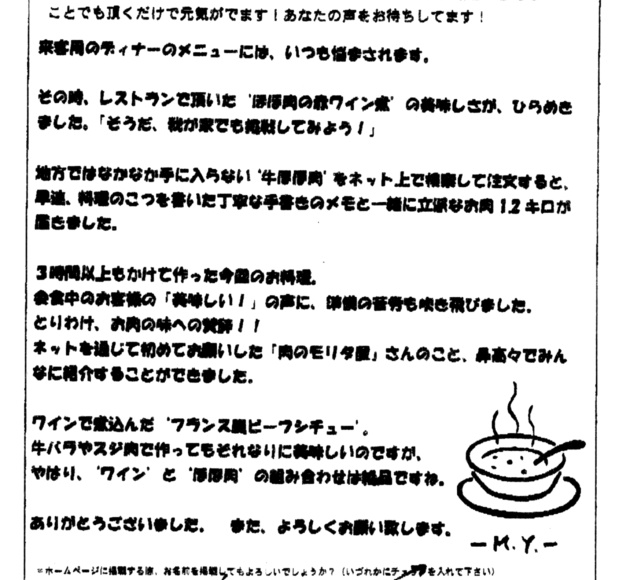 ことでも頂くだけで元気がでます！あなたの声をお待ちしてます！
来客用のディナーのメニューには、いつも悩まされます。
その時、レストランで頂いた‘ほほ肉の赤ワイン煮’の美味しさが、ひらめき
ました。「そうだ、我が家でも挑戦してみよう！」
地方ではなかなか手に入らない‘牛ほほ肉’をネット上で検索して注文すると、
早速、料理のこつを書いた丁寧な手書きのメモと一緒に立派なお肉1.2キロが
届きました。
3時間以上もかけて作った今回のお料理。
会食中のお客様の「美味しい！」の声に、準備の苦労も吹き飛びました。
とりわけ、お肉の味への賛辞！！
ネットを通じて初めてお願いした「肉のモリタ屋」さんのこと、鼻高々でみん
なに紹介することができました。
ワインで煮込んだ‘フランス風ビーフシチュー’。
牛バラやスジ肉で作ってもそれなりに美味しいのですが、
やはり、‘ワイン’と‘ほほ肉’の組み合わせは絶品ですね。
ありがとうございました。 また、よろしくお願い致します。
－M.Y.－
※ホームページに掲載する際、お名前を掲載してもよろしいでしょうか？（いづれかにチェックを入れて下さい）